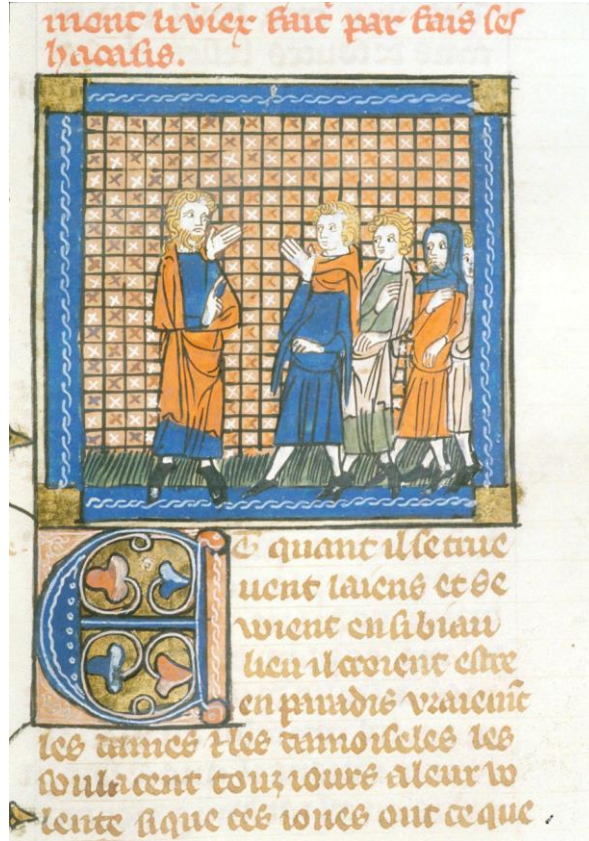 ment li viex fait par fais ses
hacasis.
Et quant il se true
uent laiens et se
voient en si biau
lieu il croient estre
en paradis vraiemt
les dames ⁊ les damoiseles les
soulacent touz iours a leur vo
lente si que ces iones ont ce que